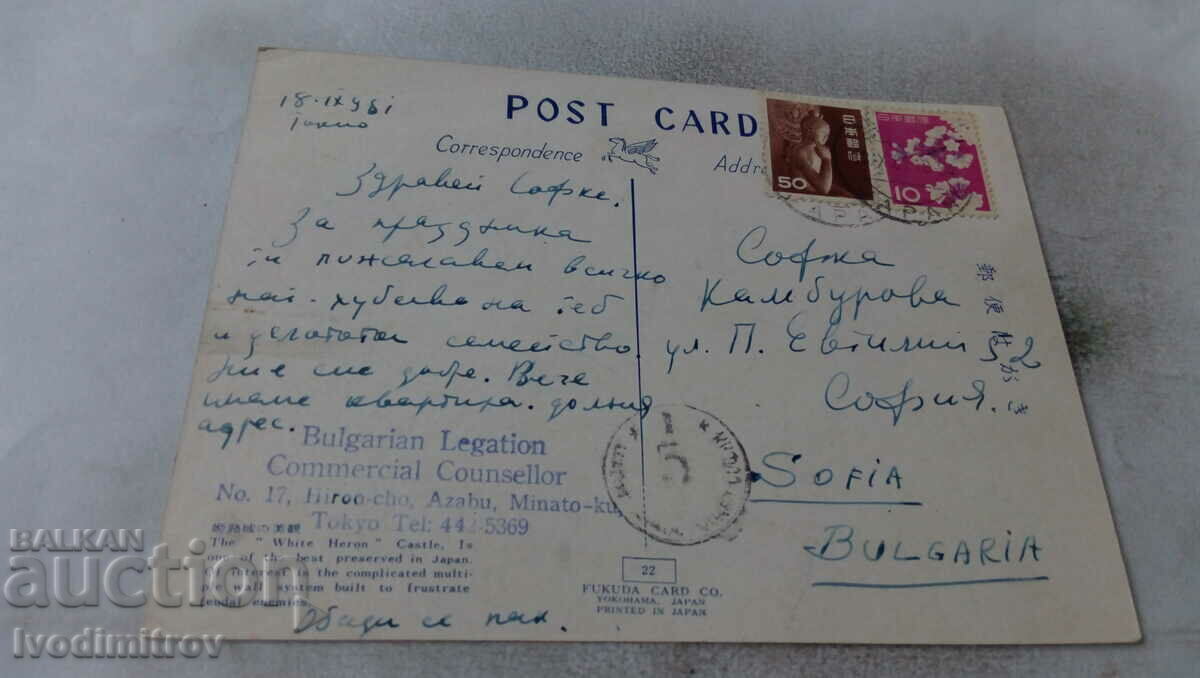 18.IX 961
Токио
POST CARD
Correspondence
Addre
日本郵便
50
日本郵便
10
Здравей Софке.
За празника
ти пожелавам всичко
най-хубаво на теб
и цялото семейство.
Ние сме добре. Вече
имаме квартира. долния
адрес.
Bulgarian Legation
Commercial Counsellor
No. 17, Hiroo-cho, Azabu, Minato-ku,
Tokyo Tel: 442-5369
姫路城の美観
The "White Heron" Castle, Is
one of the best preserved in Japan.
Of interest is the complicated multi-
ple wall system built to frustrate
feudal enemies.
Обади се пак.
Софка
Камбурова
ул. П. Евтимий 52
София.
SOFIA
BULGARIA
郵便はがき
22
FUKUDA CARD CO.
YOKOHAMA, JAPAN
PRINTED IN JAPAN
BALKAN
auction
Ivodimitrov